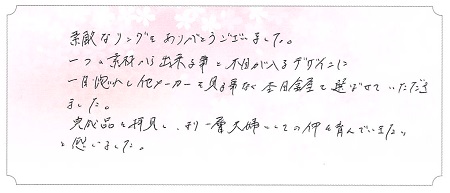 素敵なリングをありがとうございました。
一つの素材から出来る事と木目が入るデザインに
一目惚れし他メーカーを見る事なく杢目金屋を選ばせていただき
ました。
完成品を拝見し、より一層夫婦としての仲を育んでいきたい
と思いました。